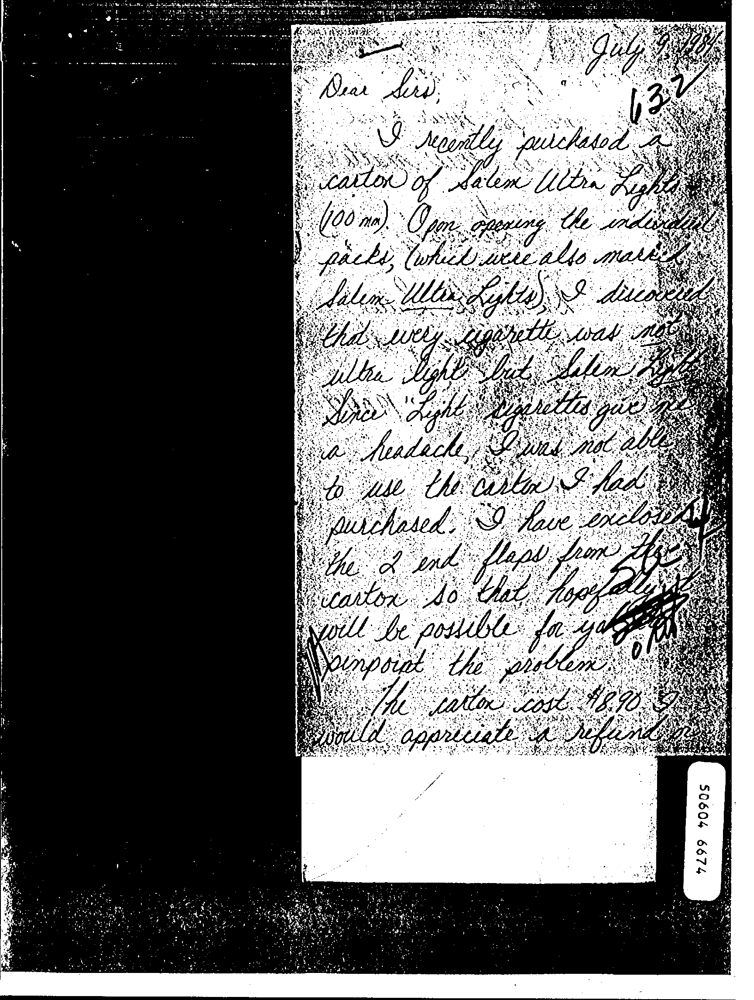 July 9, 1984
632
Dear Sirs,
I recently purchased a
carton of Salem Ultra Lights
(100 mm). Opon opening the individual
packs, (which were also marked
Salem Ultra Lights), I discovered
that every cigarette was not
ultra light but Salem Light.
Since "Light sigarettes give me
a headache, I was not able
to use the carton I had
purchased. I have enclosed
the 2 end flaps from the
carton so that hopefully it
will be possible for you
pinpoint the problem.
The carton cost $8.90 I
would appreciate a refund or
50604 6674